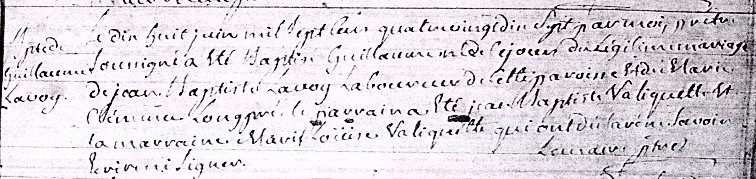 Bptede
Guillaume
Lavoy
Le dix huit juin mil sept cens quatrevingt dix sept par moi, prêtre
soussigné a été Baptisé Guillaume né le jour du légitime mariage
de jean Baptiste Lavoy Laboureur de cette paroisse et de Marie
Longpré le parrain a été jean Baptiste Valiquette et
la marraine Marie Louise Valiquette qui ont déclaré ne savoir
Ecrire ni signer.
ptre